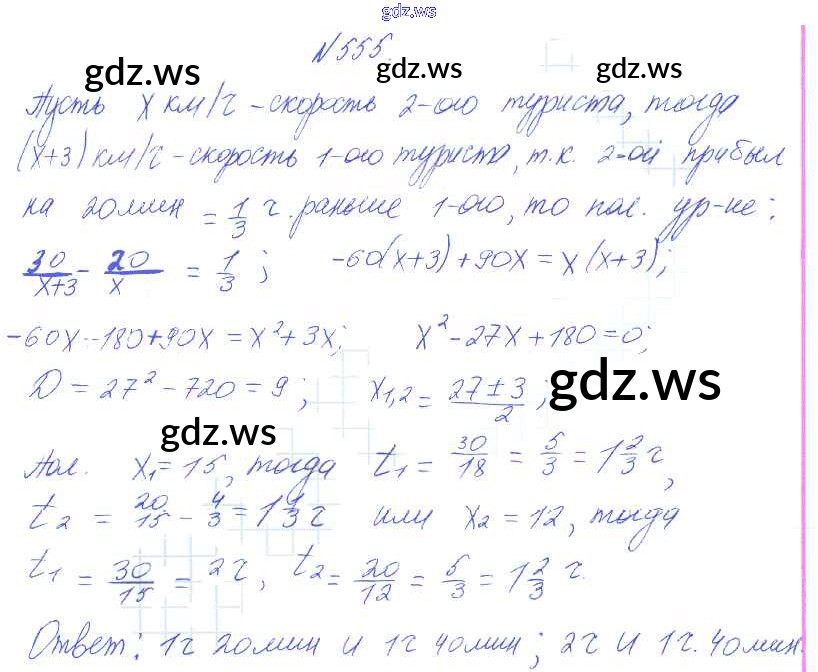 gdz.ws
N 555.
gdz.ws gdz.ws gdz.ws
Пусть x км/ч - скорость 2-ого туриста, тогда
(x+3) км/ч - скорость 1-ого туриста, т.к. 2-ой прибыл
на 20 мин = 1/3 ч. раньше 1-ого, то пол. ур-ие:
30/(x+3) - 20/x = 1/3; -60(x+3)+90x = x(x+3);
-60x-180+90x = x²+3x; x²-27x+180=0;
D = 27²-720 = 9; x1,2 = (27±3)/2;
gdz.ws
gdz.ws
Пол. x₁=15, тогда t₁ = 30/18 = 5/3 = 1 2/3 ч,
t₂ = 20/15 - 4/3 = 1 1/3 ч или x₂ = 12, тогда
t₁ = 30/15 = 2ч, t₂ = 20/12 = 5/3 = 1 2/3 ч.
Ответ: 1ч 20мин и 1ч 40мин; 2ч и 1ч. 40мин.